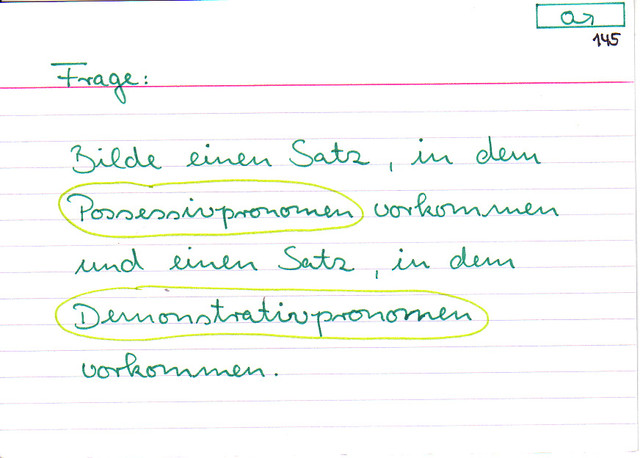 145
Frage:
Bilde einen Satz, in dem
Possessivpronomen vorkommen
und einen Satz, in dem
Demonstrativpronomen
vorkommen.